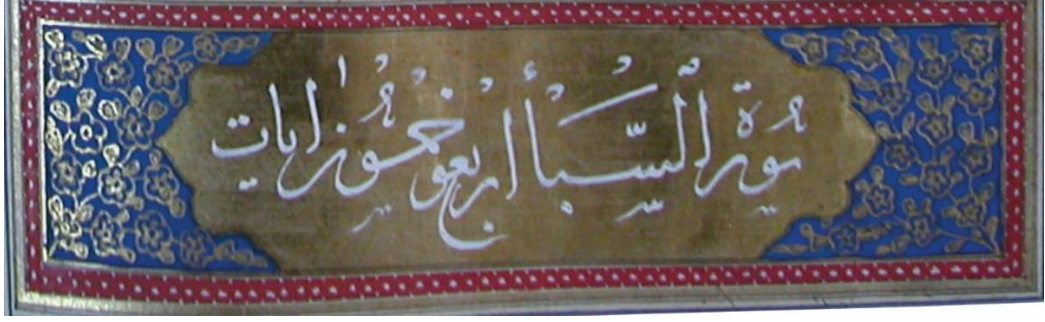 سورة السبأ اربع وخمسون ايات